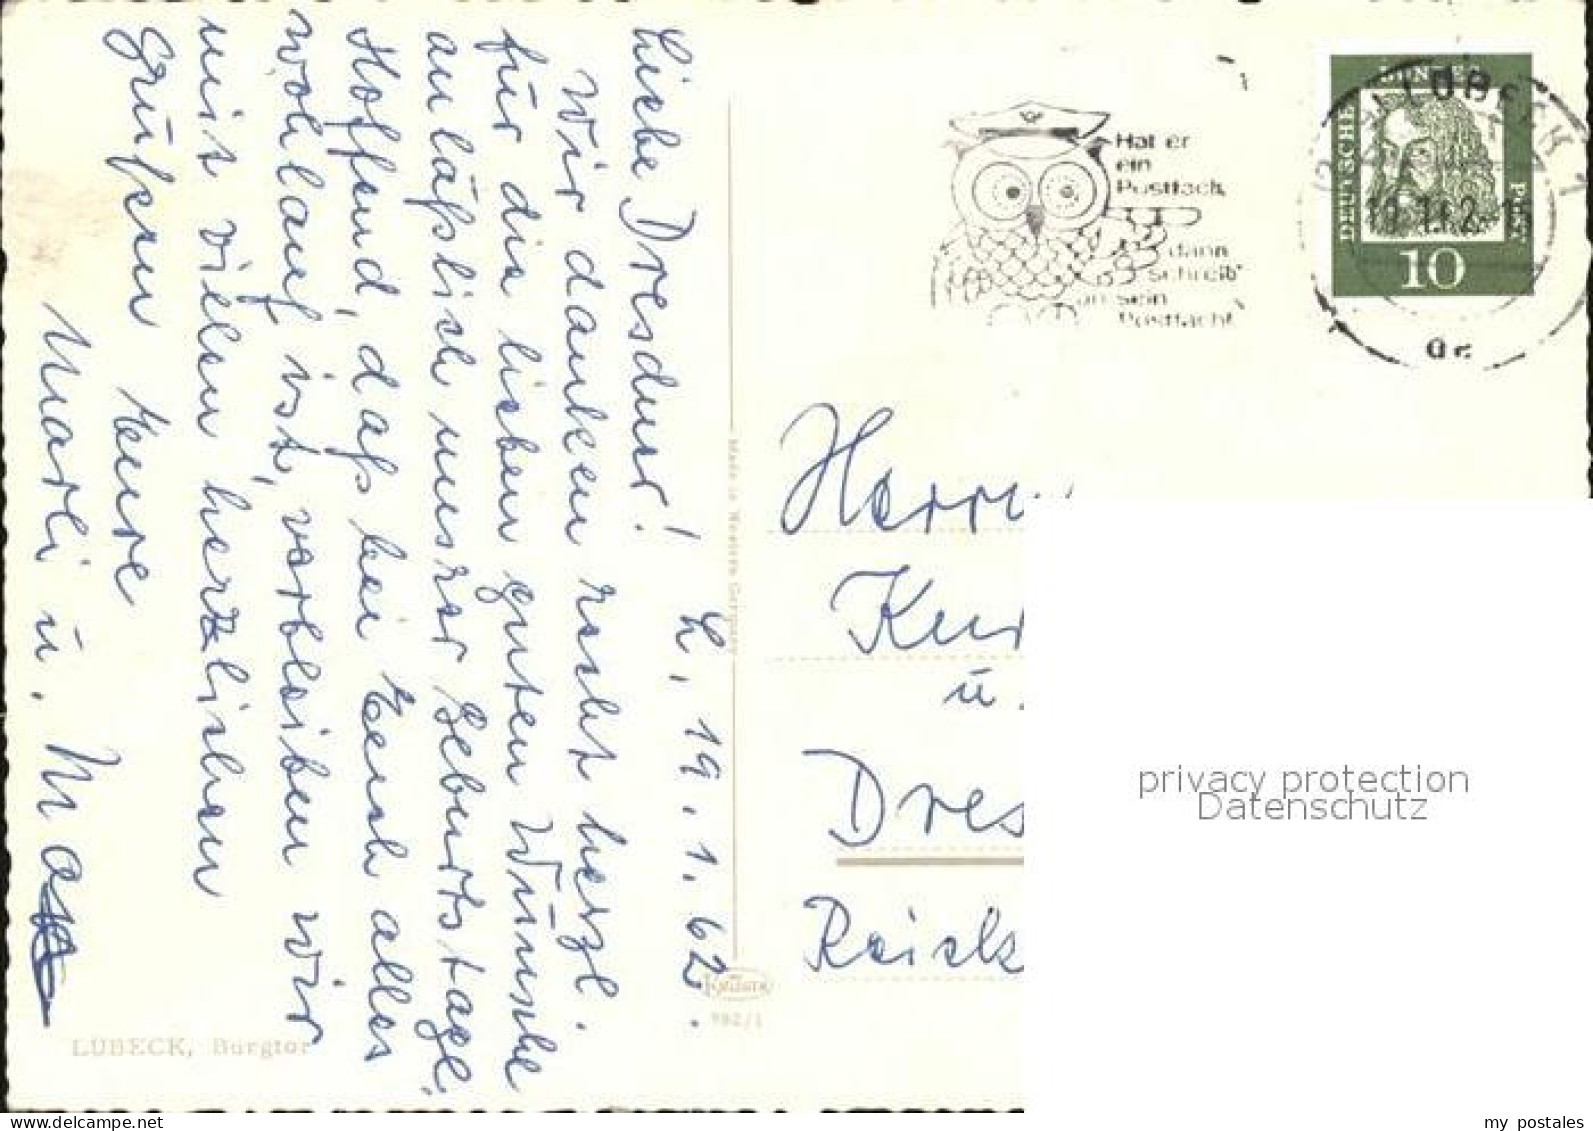 L, 19.1.62.
Liebe Dresdner!
Wir danken recht herzl.
für die lieben guten Wünsche
anläßlich unsrer Geburtstage.
Hoffend, daß bei Euch alles
wohlauf ist, verbleiben wir
mit vielen herzlichen
Grüßen Eure
Marli u. Max
LÜBECK, Burgtor
Made in Western Germany
982/1
Hat er
ein
Postfach,
dann
schreib'
an sein
Postfach!
LÜBECK 1
DEUTSCHE
BUNDES
POST
10
Herrn
Kur
u.
Dres
Reick
privacy protection
Datenschutz
delcampe.net
my postales